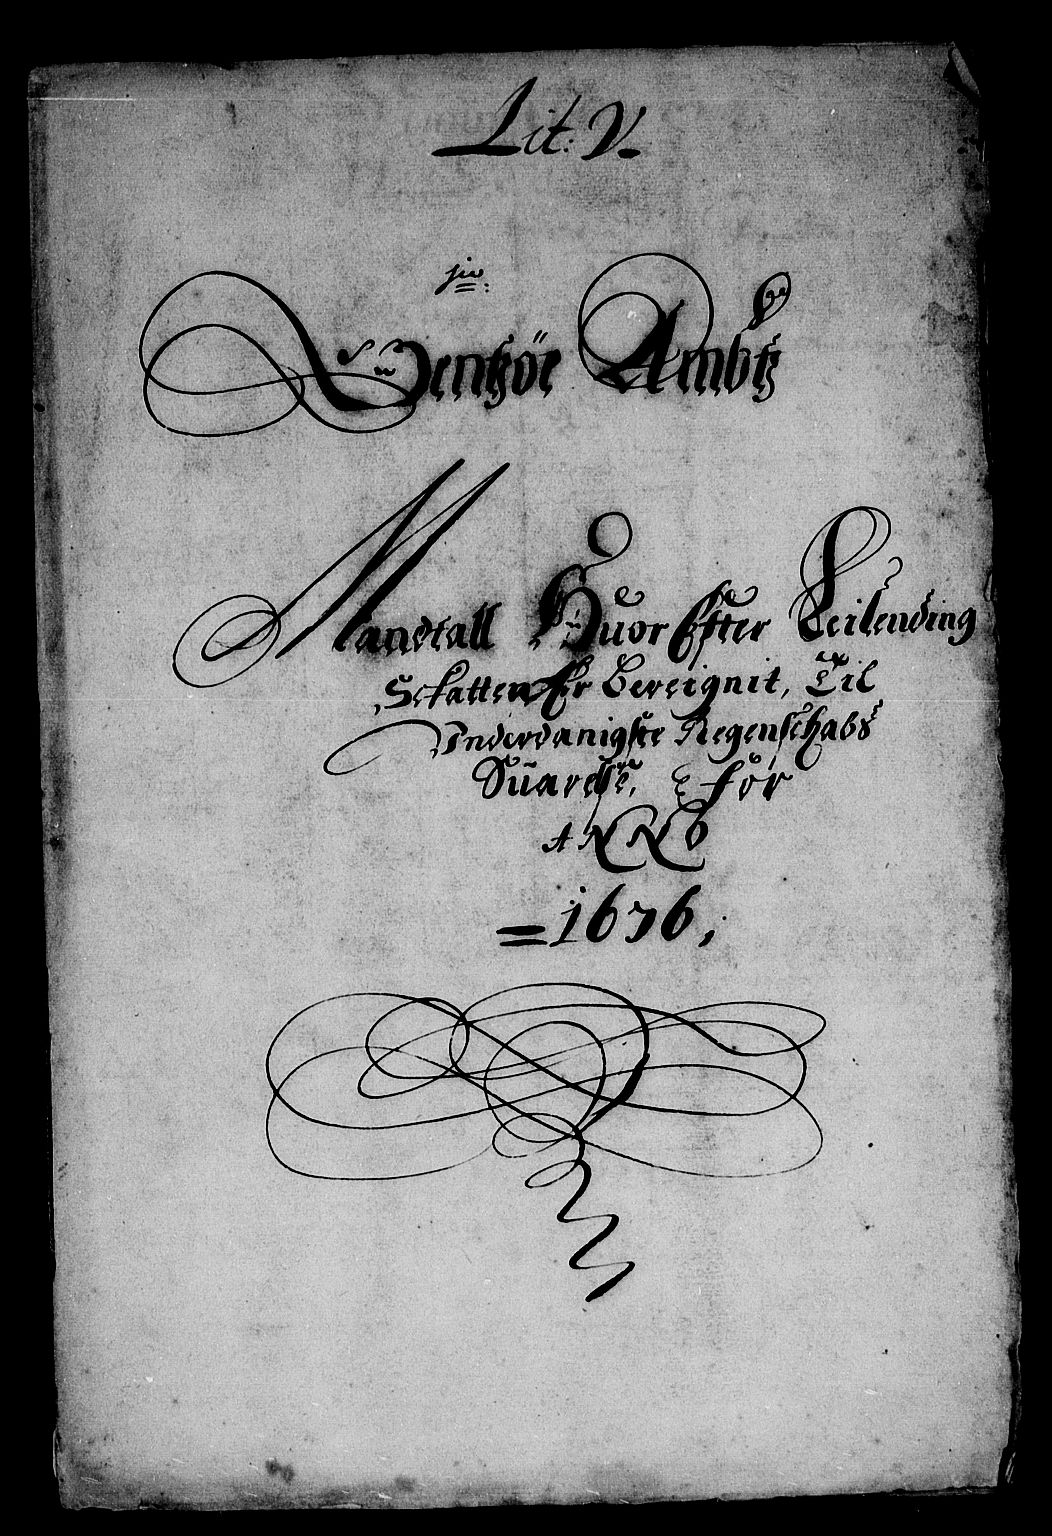 Lit: V.
Sentzöe Ambtz
Mandtall Huor Efter Leilending
Schatten Er Bereignit, Til
Underdanigste Regenschabs
Suarelse, för
ANNO
=1676,